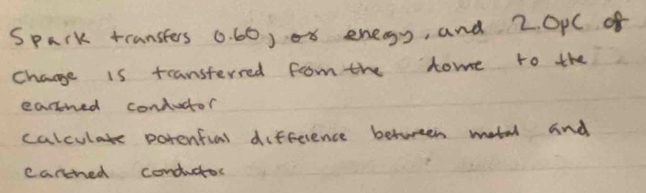 Spark transfers 0.60J of enegy, and 2.0μC of
Charge is transferred from the dome to the
earthed conductor
calculate potential difference between metal and
earthed conductor